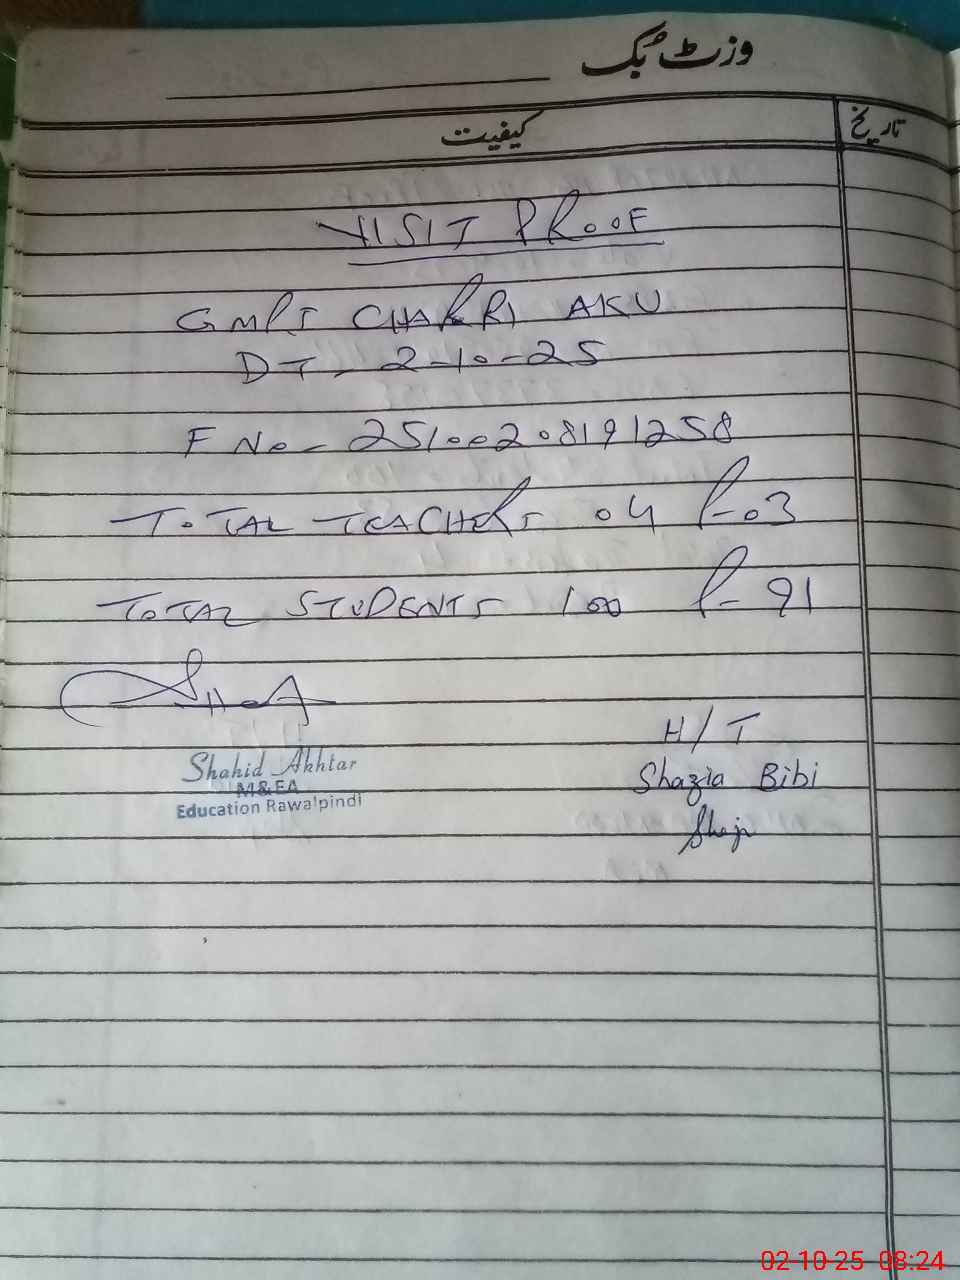 وزٹ بک
کیفیت
تاریخ
VISIT PROOF
GMPS CHAKRI AKU
DT - 2-10-25
F No - 25100208191258
TOTAL TEACHERS 04 P-03
TOTAL STUDENTS 100 P-91
H/T
Shahid Akhtar
M&EA
Education Rawalpindi
Shazia Bibi
02-10-25 08:24